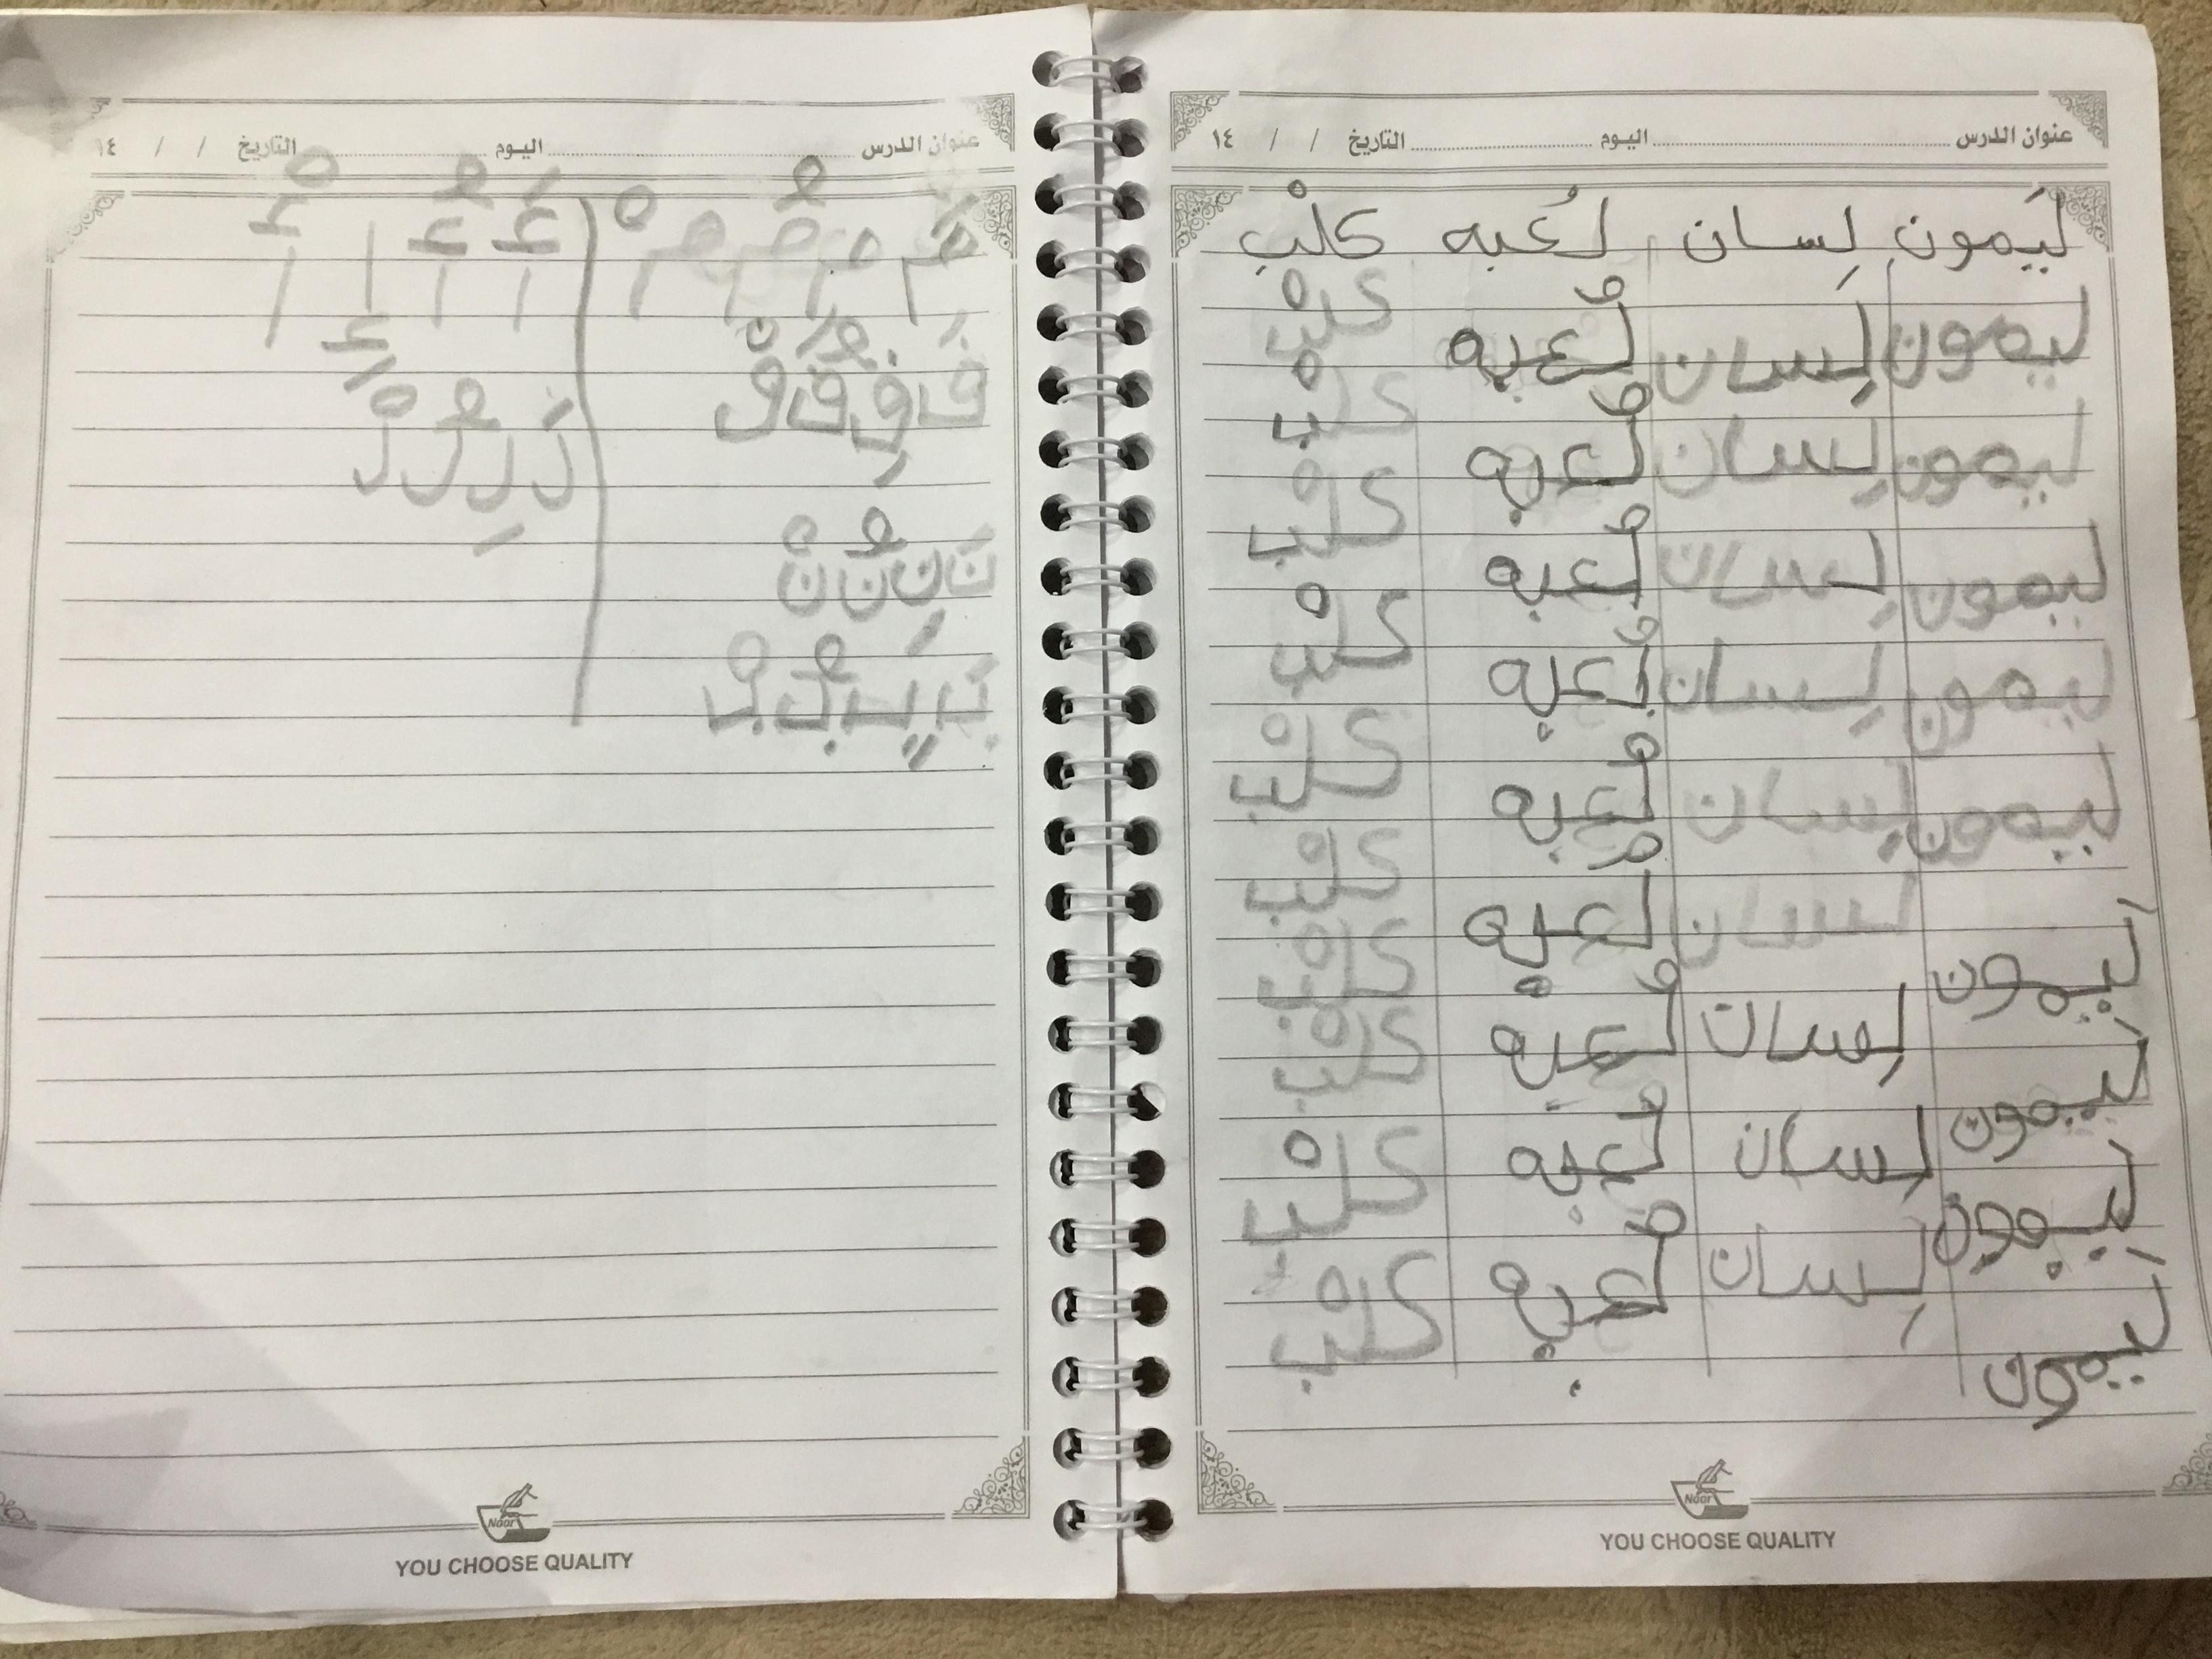 عنوان الدرس اليوم التاريخ / / ١٤
لَيمون لِسان لُعبه كلْب
ليمون لِسان لُعبه كلْب
ليمون لِسان لُعبه كلْب
ليمون لِسان لُعبه كلْب
ليمون لِسان لُعبه كلْب
ليمون لِسان لُعبه كلْب
لَيمون لسان لُعبه كلْب
لَيمون لِسان لُعبه كلْب
لِسان لُعبه كلْب
لَيمون لِسان لُعبه كلْب
كلْب
Noor
YOU CHOOSE QUALITY
عنوان الدرس اليوم التاريخ / / ١٤
أَ أُ أِ أْ
فَ فِ فُ فْ
لَ لِ لُ لْ
نَ نِ نُ نْ
بَ بِ بُ بْ
Noor
YOU CHOOSE QUALITY